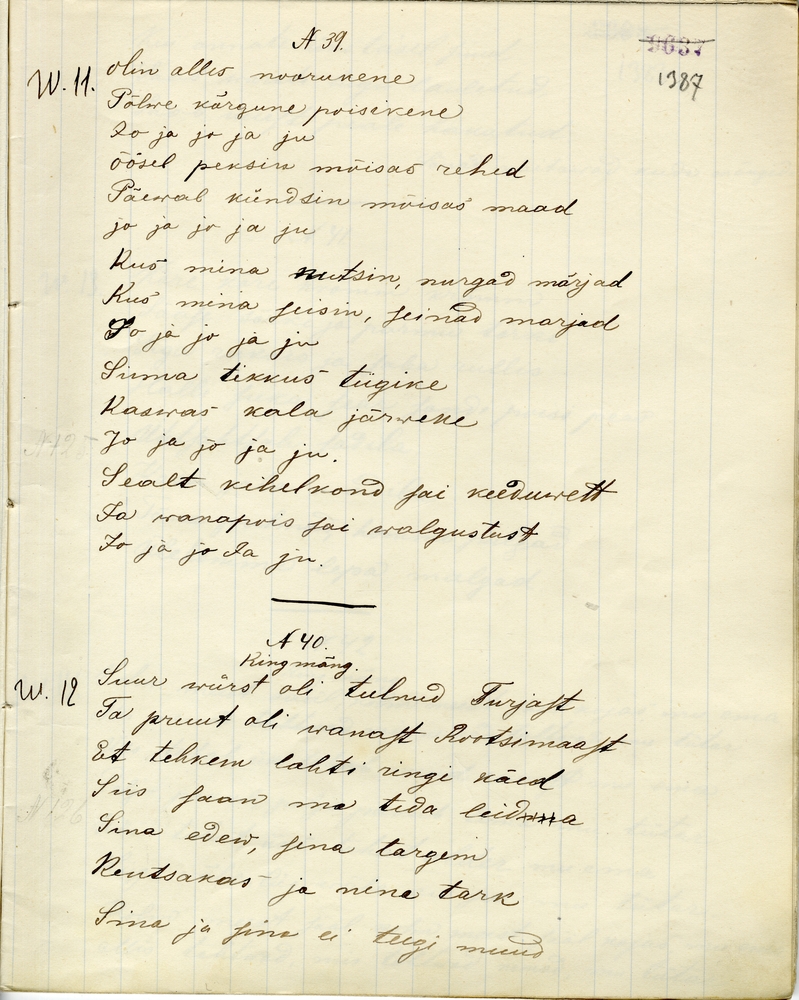 N 39.
9637
1387
W. 11.
Olin alles noorukene
Põlwe kõrgune poisikene
Jo ja jo ja ju
Öösel peksin mõisas rehed
Päewal kündsin mõisas maad
jo ja jo ja ju
Kus mina nutsin, nurgad märjad
Kus mina seisin, seinad marjad
Jo ja jo ja ju
Sinna tikkus tiigike
Kaswas kala järweke
Jo ja jo ja ju.
Sealt kihelkond sai keeduwett
Ja wanapois sai walgustust
Jo ja jo Ja ju.
N 40.
Ringmäng.
W. 12
Suur würst oli tulnud Turjast
Ta pruut oli wanast Rootsimaast
Et tehkem lahti ringi käed
Siis saan ma teda leida
Sina edew, sina targem
Rentsakas ja nina tark
Sina ja sina ei teegi muud